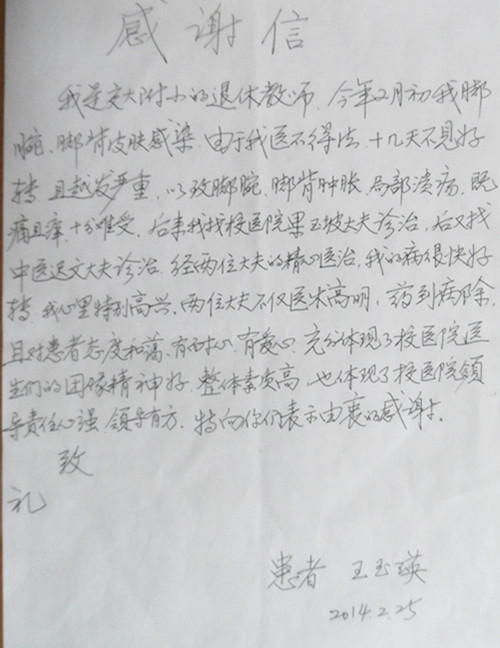 感谢信
我是交大附小的退休教师，今年2月初我脚
腕、脚背皮肤感染，由于我医不得法，十几天不见好
转，且越发严重，以致脚腕、脚背肿胀，局部溃疡，既
痛且痒，十分难受，后来我找校医院果玉坡大夫诊治，后又找
中医迟文大夫诊治，经两位大夫的精心医治，我的病很快好
转，我心里特别高兴，两位大夫不仅医术高明，药到病除，
且对患者态度和蔼，有耐心、有爱心，充分体现了校医院医
生们的团队精神好，整体素质高，也体现了校医院领
导责任心强，领导有方，特向你们表示由衷的感谢。
致
礼
患者 王玉瑛
2014.2.25